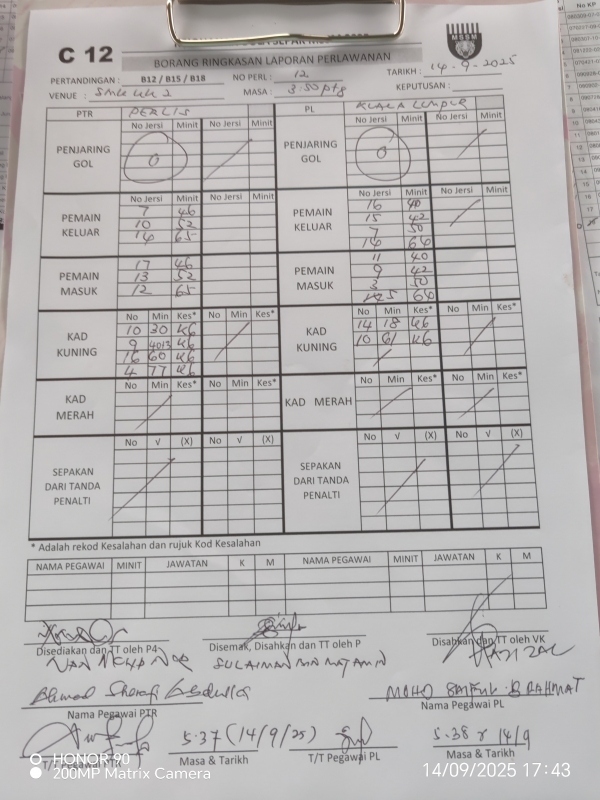 C 12
MSSM
BORANG RINGKASAN LAPORAN PERLAWANAN
PERTANDINGAN : B12 / B15 / B18 NO PERL : 12 TARIKH : 14-9-2025
VENUE : SMK UK 2 MASA : 3.50 ptg KEPUTUSAN :
PTR PERLIS PL KUALA LUMPUR
No Jersi Minit No Jersi Minit No Jersi Minit No Jersi Minit
PENJARING GOL 0 PENJARING GOL 0
No Jersi Minit No Jersi Minit No Jersi Minit No Jersi Minit
PEMAIN KELUAR PEMAIN KELUAR
7 46 16 40
10 52 15 42
16 65 7 50
14 64
PEMAIN MASUK PEMAIN MASUK
17 46 11 40
13 52 9 42
12 65 3 50
5 64
No Min Kes* No Min Kes* No Min Kes* No Min Kes*
KAD KUNING KAD KUNING
10 30 K6 14 18 K6
9 K6 10 61 K6
16 60 K6
4 77 K6
No Min Kes* No Min Kes* No Min Kes* No Min Kes*
KAD MERAH KAD MERAH
No √ (X) No √ (X) No √ (X) No √ (X)
SEPAKAN DARI TANDA PENALTI SEPAKAN DARI TANDA PENALTI
* Adalah rekod Kesalahan dan rujuk Kod Kesalahan
NAMA PEGAWAI MINIT JAWATAN K M NAMA PEGAWAI MINIT JAWATAN K M
Disediakan dan TT oleh P4 Disemak, Disahkan dan TT oleh P Disahkan dan TT oleh VK
SULAIMAN BIN MAT AMIN
MOHD SAIFUL B RAHMAT
Nama Pegawai PTR Nama Pegawai PL
5.37 (14/9/25) 5.38 14/9
T/T Pegawai PTR Masa & Tarikh T/T Pegawai PL Masa & Tarikh
HONOR 90
200MP Matrix Camera 14/09/2025 17:43